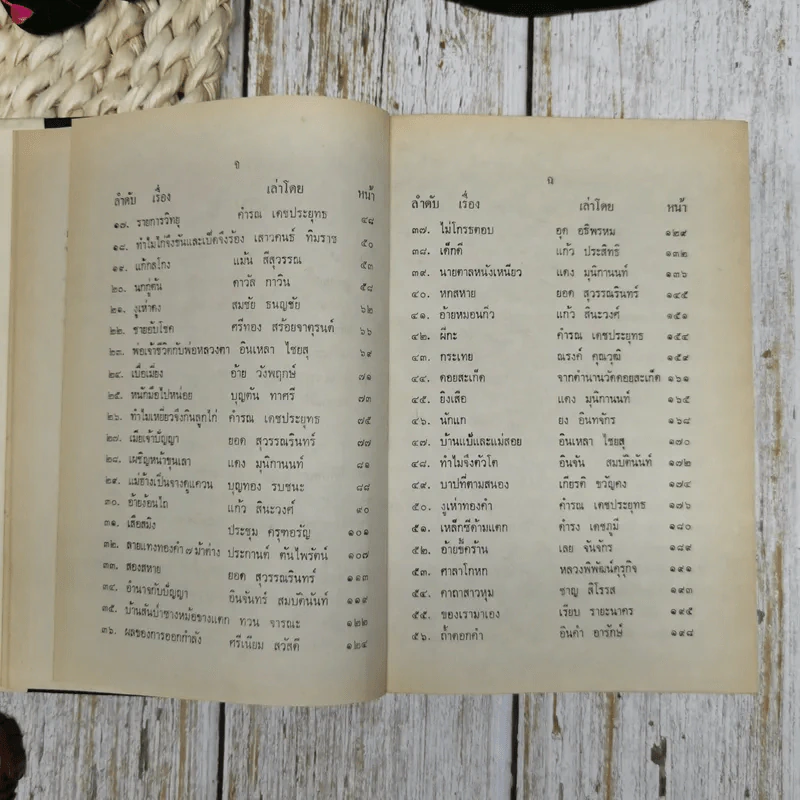 จ
ลำดับ เรื่อง เล่าโดย หน้า
๑๗. รายการวิทยุ คำรณ เดชประยุทธ ๔๘
๑๘. ทำไมไก่จึงขันและเป็ดจึงร้อง เสาวคนธ์ ทิมราช ๕๐
๑๙. แก้กลโกง แม้น สีสุวรรณ ๕๓
๒๐. นกกู่ตัน ดาวัส กาวิน ๕๘
๒๑. งูเห่าดง สมชัย ธนญชัย ๖๒
๒๒. ชายอับโชค ศรีทอง สร้อยจาตุรนต์ ๖๖
๒๓. พ่อเจ้าชีวิตกับพ่อหลวงตา อินเหลา ไชยสุ ๖๙
๒๔. เบื่อเมี่ยง อ้าย วังพฤกษ์ ๗๑
๒๕. หนักมือไปหน่อย บุญตัน ทาศรี ๗๓
๒๖. ทำไมเหยี่ยวจึงกินลูกไก่ คำรณ เดชประยุทธ ๗๕
๒๗. เมียเจ้าปัญญา ยอด สุวรรณรินทร์ ๗๗
๒๘. เผชิญหน้าขุนเลา แดง มุนิกานนท์ ๘๑
๒๙. แม่อ้างเป็นจางดูแควน บุญทอง รบชนะ ๘๘
๓๐. อ้ายง้อนไถ แก้ว สินะวงศ์ ๙๐
๓๑. เสือสมิง ประชุม ครุฑอรัญ ๑๐๑
๓๒. ลายแทงทองคำ ๗ ม้าต่าง ประกานต์ ตันไพรัตน์ ๑๐๗
๓๓. สองสหาย ยอด สุวรรณรินทร์ ๑๑๓
๓๔. อำนาจกับปัญญา อินจันทร์ สมบตินันท์ ๑๑๙
๓๕. บ้านสันป่าซางหม้อขางแตก ทวน จารณะ ๑๒๒
๓๖. ผลของการออกกำลัง ศรีเนียม สวัสดี ๑๒๔
ฉ
ลำดับ เรื่อง เล่าโดย หน้า
๓๗. ไม่โกรธตอบ อุด อธิพรหม ๑๒๙
๓๘. เด็กดี แก้ว ประสิทธิ ๑๓๒
๓๙. นายตาลหนังเหนียว แดง มุนิกานนท์ ๑๓๖
๔๐. หกสหาย ยอด สุวรรณรินทร์ ๑๔๕
๔๑. อ้ายหมอนกิ่ว แก้ว สินะวงศ์ ๑๕๑
๔๒. ผีกะ คำรณ เดชประยุทธ ๑๕๔
๔๓. กระเทย ณรงค์ คุณวุฒิ ๑๕๙
๔๔. ดอยสะเก็ด จากตำนานวัดดอยสะเก็ด ๑๖๑
๔๕. ยิงเสือ แดง มุนิกานนท์ ๑๖๕
๔๖. นักแก ยง อินทจักร ๑๖๘
๔๗. บ้านแป้และแม่สอย อินเหลา ไชยสุ ๑๗๐
๔๘. ทำไมจึงตัวโต อินจัน สมบตินันท์ ๑๗๒
๔๙. บาปที่ตามสนอง เกียรติ ขวัญคง ๑๗๔
๕๐. งูเห่าทองคำ คำรณ เดชประยุทธ ๑๗๖
๕๑. เหล็กซีด้ามแตก ดำรง เดชภูมี ๑๘๐
๕๒. อ้ายขี้คร้าน เลย จันจักร ๑๘๙
๕๓. ศาลาโกหก หลวงพิพัฒน์คุรุกิจ ๑๙๑
๕๔. คาถาสาวหุม ชาญ สิโรรส ๑๙๓
๕๕. ของเรามาเอง เรียบ รายะนาคร ๑๙๕
๕๖. ถ้ำดอกคำ อินคำ อารักษ์ ๑๙๘